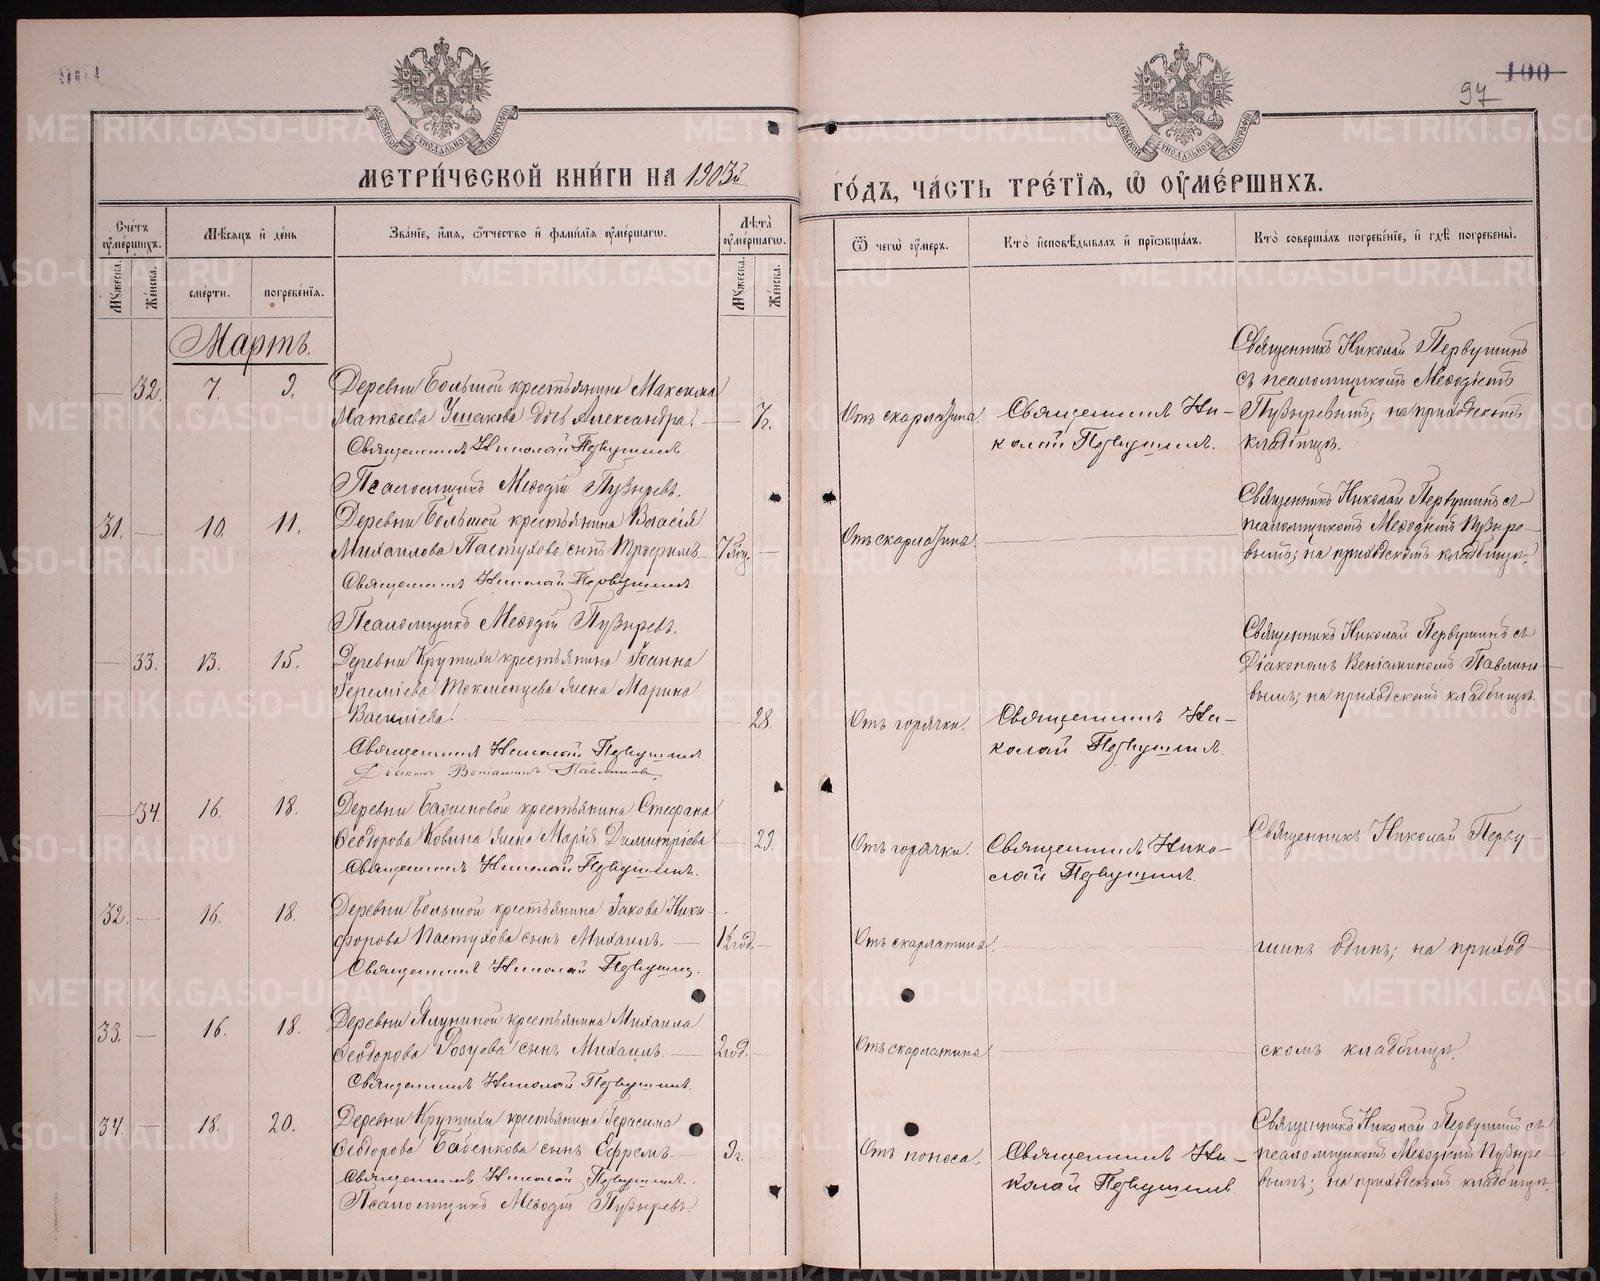 100
97
МОСКОВСКОЙ СѴНОДАЛЬНОЙ ТИПОГРАФІИ
МОСКОВСКОЙ СѴНОДАЛЬНОЙ ТИПОГРАФІИ
МЕТРИ́ЧЕСКОЙ КНИ́ГИ НА 1903й
ГО́ДЪ, ЧА́СТЬ ТРЕ́ТІѦ, Ѡ҆ ОУ҆МЕ́РШИХЪ.
Сче́тъ оу҆ме́ршихъ.
Мѣ́сяцъ и҆ де́нь
Зва́нїе, и҆́мя, ѻ҆́тчество и҆ фами́лїя оу҆ме́ршагѡ.
Лѣ́та оу҆ме́ршагѡ.
Ѿ чегѡ̀ оу҆́меръ.
Кто̀ и҆сповѣ́дывалъ и҆ прїѡбща́лъ.
Кто̀ соверша́лъ погребе́нїе, и҆ гдѣ̀ погребены̀.
Мꙋ́жеска.
Же́нска.
сме́рти.
погребе́нїя.
Мꙋ́жеска.
Же́нска.
Мартъ.
32. 7. 9. Деревни Большой крестьянина Максима
Матѳеева Ушакова дочь Александра. 7г.
Священникъ Николай Первушинъ.
Псаломщикъ Меѳодій Пузыревъ.
Отъ скарлатина. Священникъ Ни-
колай Первушинъ.
Священникъ Николай Первушинъ
съ псаломщикомъ Меѳодіемъ
Пузыревымъ; на приходскомъ
кладбищѣ.
31. 10. 11. Деревни Большой крестьянина Власія
Михаилова Пастухова сынъ Трофимъ 7 мц.
Священникъ Николай Первушинъ
Псаломщикъ Меѳодій Пузыревъ.
Отъ скарлатина.
Священникъ Николай Первушинъ съ
псаломщикомъ Меѳодіемъ Пузыре-
вымъ; на приходскомъ кладбищѣ.
33. 13. 15. Деревни Крутихи крестьянина Іоанна
Іереміева Токменцева жена Марина
Василіева. 28.
Священникъ Николай Первушинъ
Діаконъ Веніаминъ Павлиновъ.
Отъ горячки. Священникъ Ни-
колай Первушинъ.
Священникъ Николай Первушинъ съ
Діакономъ Веніаминомъ Павлино-
вымъ; на приходскомъ кладбищѣ.
34. 16. 18. Деревни Баженовой крестьянина Стефана
Ѳеодорова Ковина жена Марія Димитріева 23.
Священникъ Николай Первушинъ.
Отъ горячки. Священникъ Нико-
лай Первушинъ.
Священникъ Николай Перву-
32. 16. 18. Деревни Большой крестьянина Іакова Ники-
форова Пастухова сынъ Михаилъ. 1½ год.
Священникъ Николай Первушин.
Отъ скарлатина.
шинъ одинъ; на приход-
33. 16. 18. Деревни Ялуниной крестьянина Михаила
Ѳеодорова сынъ Михаилъ. 2 год.
Священникъ Николай Первушинъ.
Отъ скарлатина.
скомъ кладбищѣ.
34. 18. 20. Деревни Крутихи крестьянина Герасима
Ѳеодорова Бабенкова сынъ Ефремъ. 3г.
Священникъ Николай Первушинъ.
Псаломщикъ Меѳодій Пузыревъ.
Отъ поноса. Священникъ Ни-
колай Первушинъ.
Священникъ Николай Первушинъ съ
псаломщикомъ Меѳодіемъ Пузыре-
вымъ; на приходскомъ кладбищѣ.
METRIKI.GASO-URAL.RU